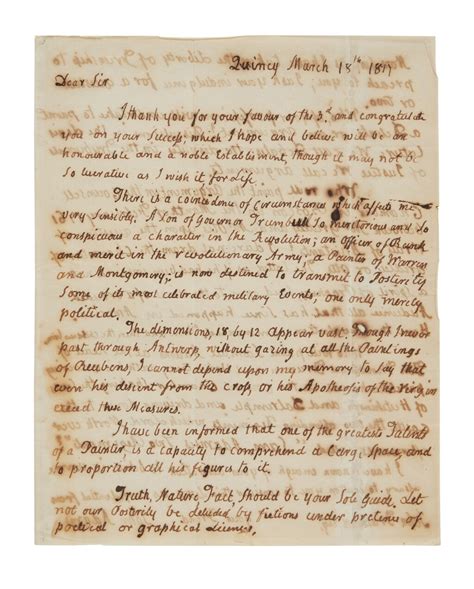 Quincy March 18th 1817
Dear Sir
I thank you for your favour of the 3d. and congratulate
you on your Success, which I hope and believe will be an
honourable and a noble Establisment, though it may not be
So lucrative as I wish it for Life.
There is a coincidence of Circumstance which affects me
very Sensibly. A Son of Governor Trumbull So meritorious and so
conspicuous a character in the Revolution; an Officer of Rank
and merit in the revolutionary Army; a Painter of Warren
and Montgomery; is now destined to transmit to Posterity
Some of its most celebrated military Events; one only merely
political.
The dimensions, 18 by 12 Appear vast, though I never
past through Antwerp, without gazing at all the Paintings
of Reubens, I cannot depend upon my memory to Say that
even his descent from the cross, or his Apotheosis of the Virgin
exceed these Measures.
I have been informed that one of the greatest Talents
of a Painter, is a capacity to comprehend a large Space, and
to proportion all his figures to it.
Truth, Nature, Fact, Should be your Sole Guide. Let
not our Posterity be deluded by fictions under pretence of
poetical or graphical Licenses.